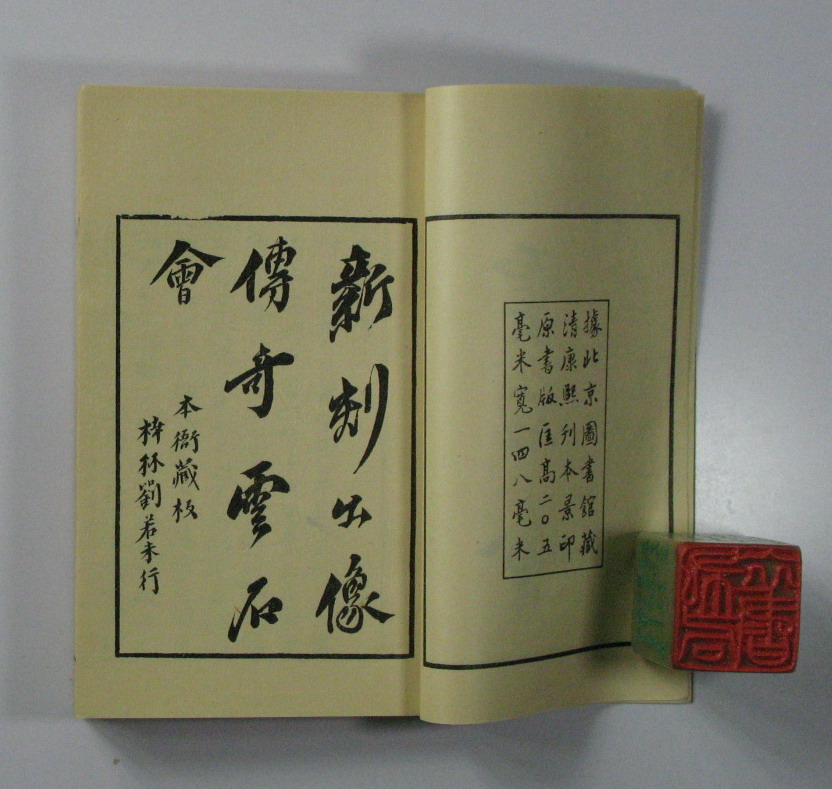 據北京圖書館藏
清康熙刊本景印
原書版匡高二〇五
毫米寬一四八毫米
新刻出像
傳奇雲石
會
本衙藏板
梓林劉若行